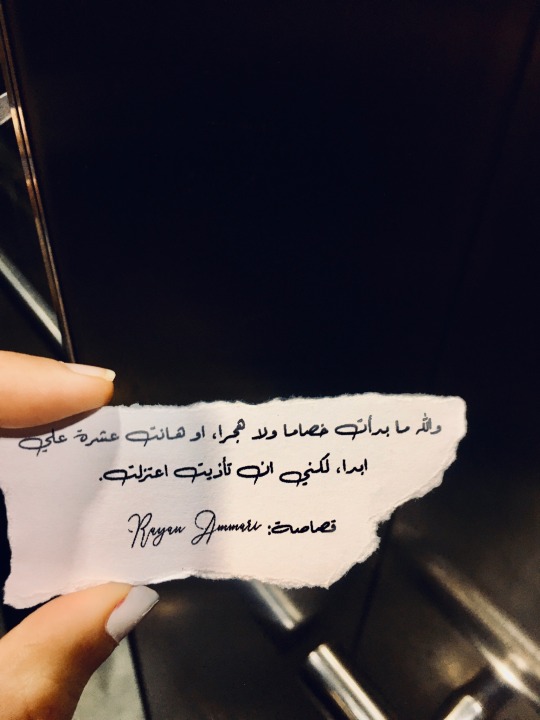 والله ما بدأت خصاما ولا هجرا، او هانت عشرة علي
ابدا، لكني ان تأذيت اعتزلت.
قصاصة: Rayan Ammari